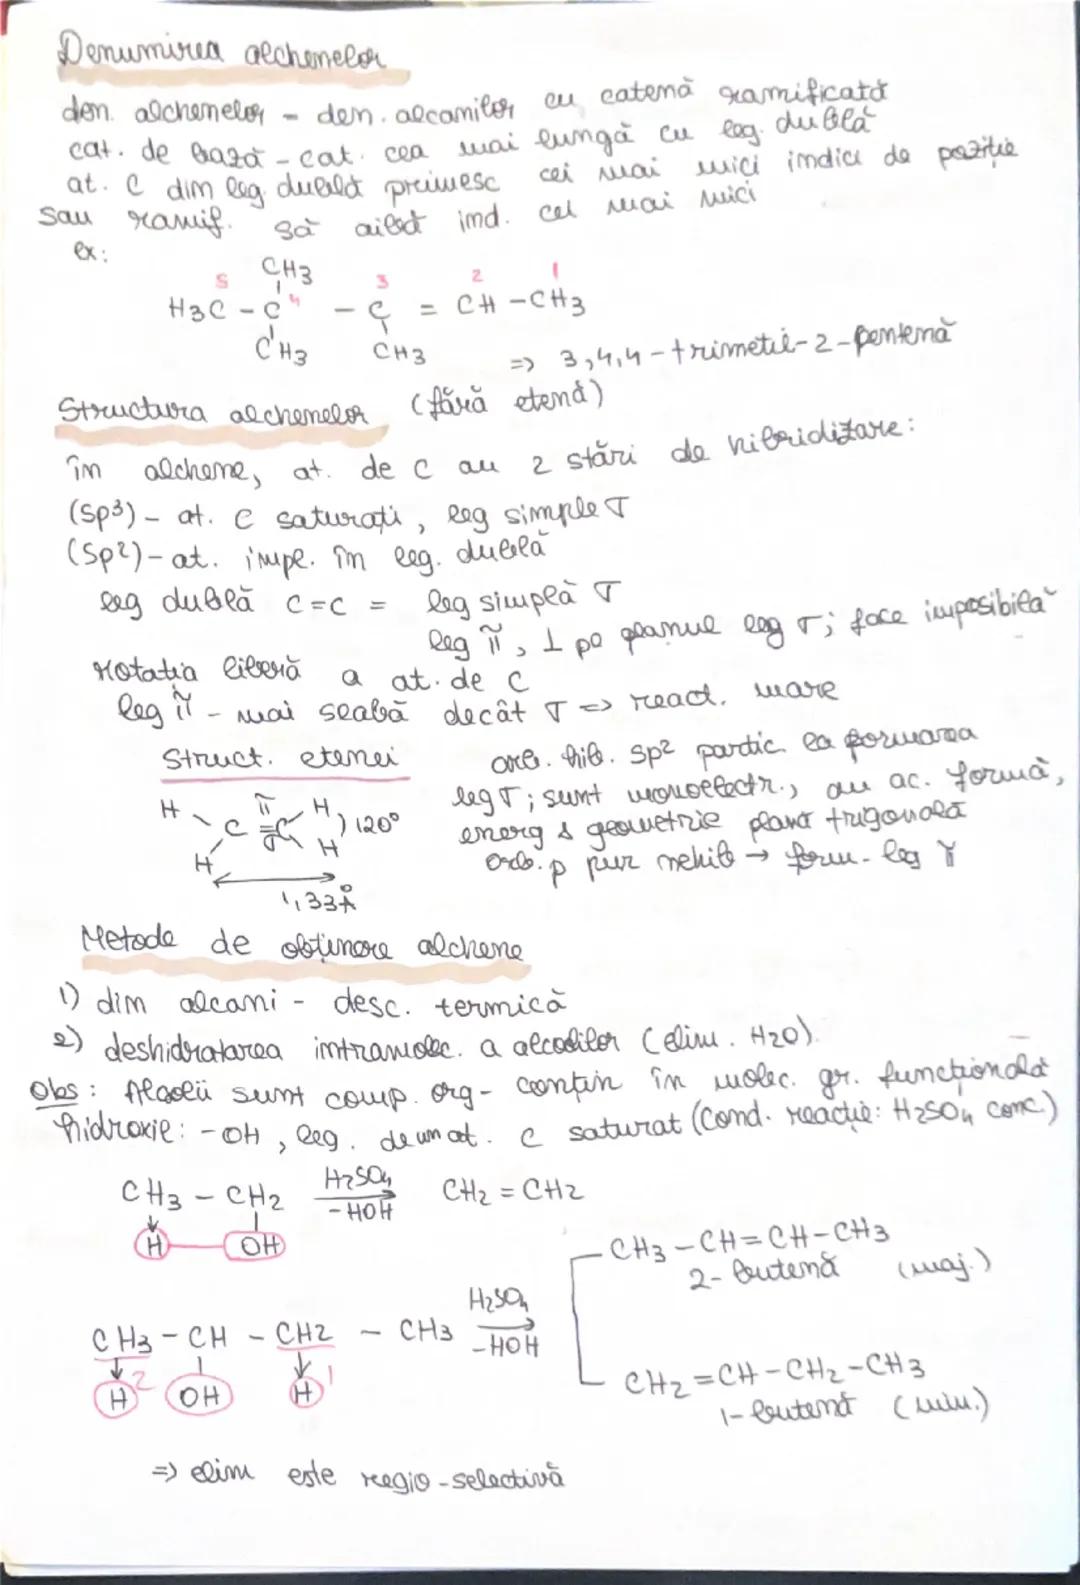 Denumirea alchenelor
den. alchenelor - den. alcanilor cu catenă ramificată
cat. de bază - cat. cea mai lungă cu leg. dublă
at. C din leg. dublă primesc cei mai mici indici de poziție
sau ramif. să aibă ind. cel mai mici
ex:
CH3
5 4 3 2 1
H3C - C - C = CH - CH3
CH3 CH3
=> 3,4,4-trimetil-2-pentenă
Structura alchenelor (fără etenă)
în alchene, at. de C au 2 stări de hibridizare:
(Sp3) - at. C saturați, leg simple σ
(Sp2) - at. impl. în leg. dublă
leg dublă C=C = leg simplă σ
leg π, ⊥ pe planul leg σ; face imposibilă
rotația liberă a at. de C
leg π - mai slabă decât σ => react. mare
Struct. etenei
orb. hib. sp2 partic. la formarea
leg σ; sunt monoelectr., au ac. formă,
energ & geometrie plană trigonală
orb. p pur nehib → form. leg π
H H
π
C = C ) 120°
σ
H H
1,33Å
Metode de obținere alchene
1) din alcani - desc. termică
2) deshidratarea intramolec. a alcoolilor (elim. H2O)
Obs: Algolii sunt comp. org - conțin în molec. gr. funcțională
hidroxil: -OH, leg. de un at. C saturat (Cond. reacție: H2SO4 conc.)
CH3 - CH2 H2SO4 -HOH CH2 = CH2
H OH
CH3 - CH = CH - CH3
2-butenă (maj.)
CH3 - CH - CH2 - CH3 H2SO4 -HOH
H 2 OH H 1
CH2 = CH - CH2 - CH3
1-butenă (min.)
=> elim este regio-selectivă